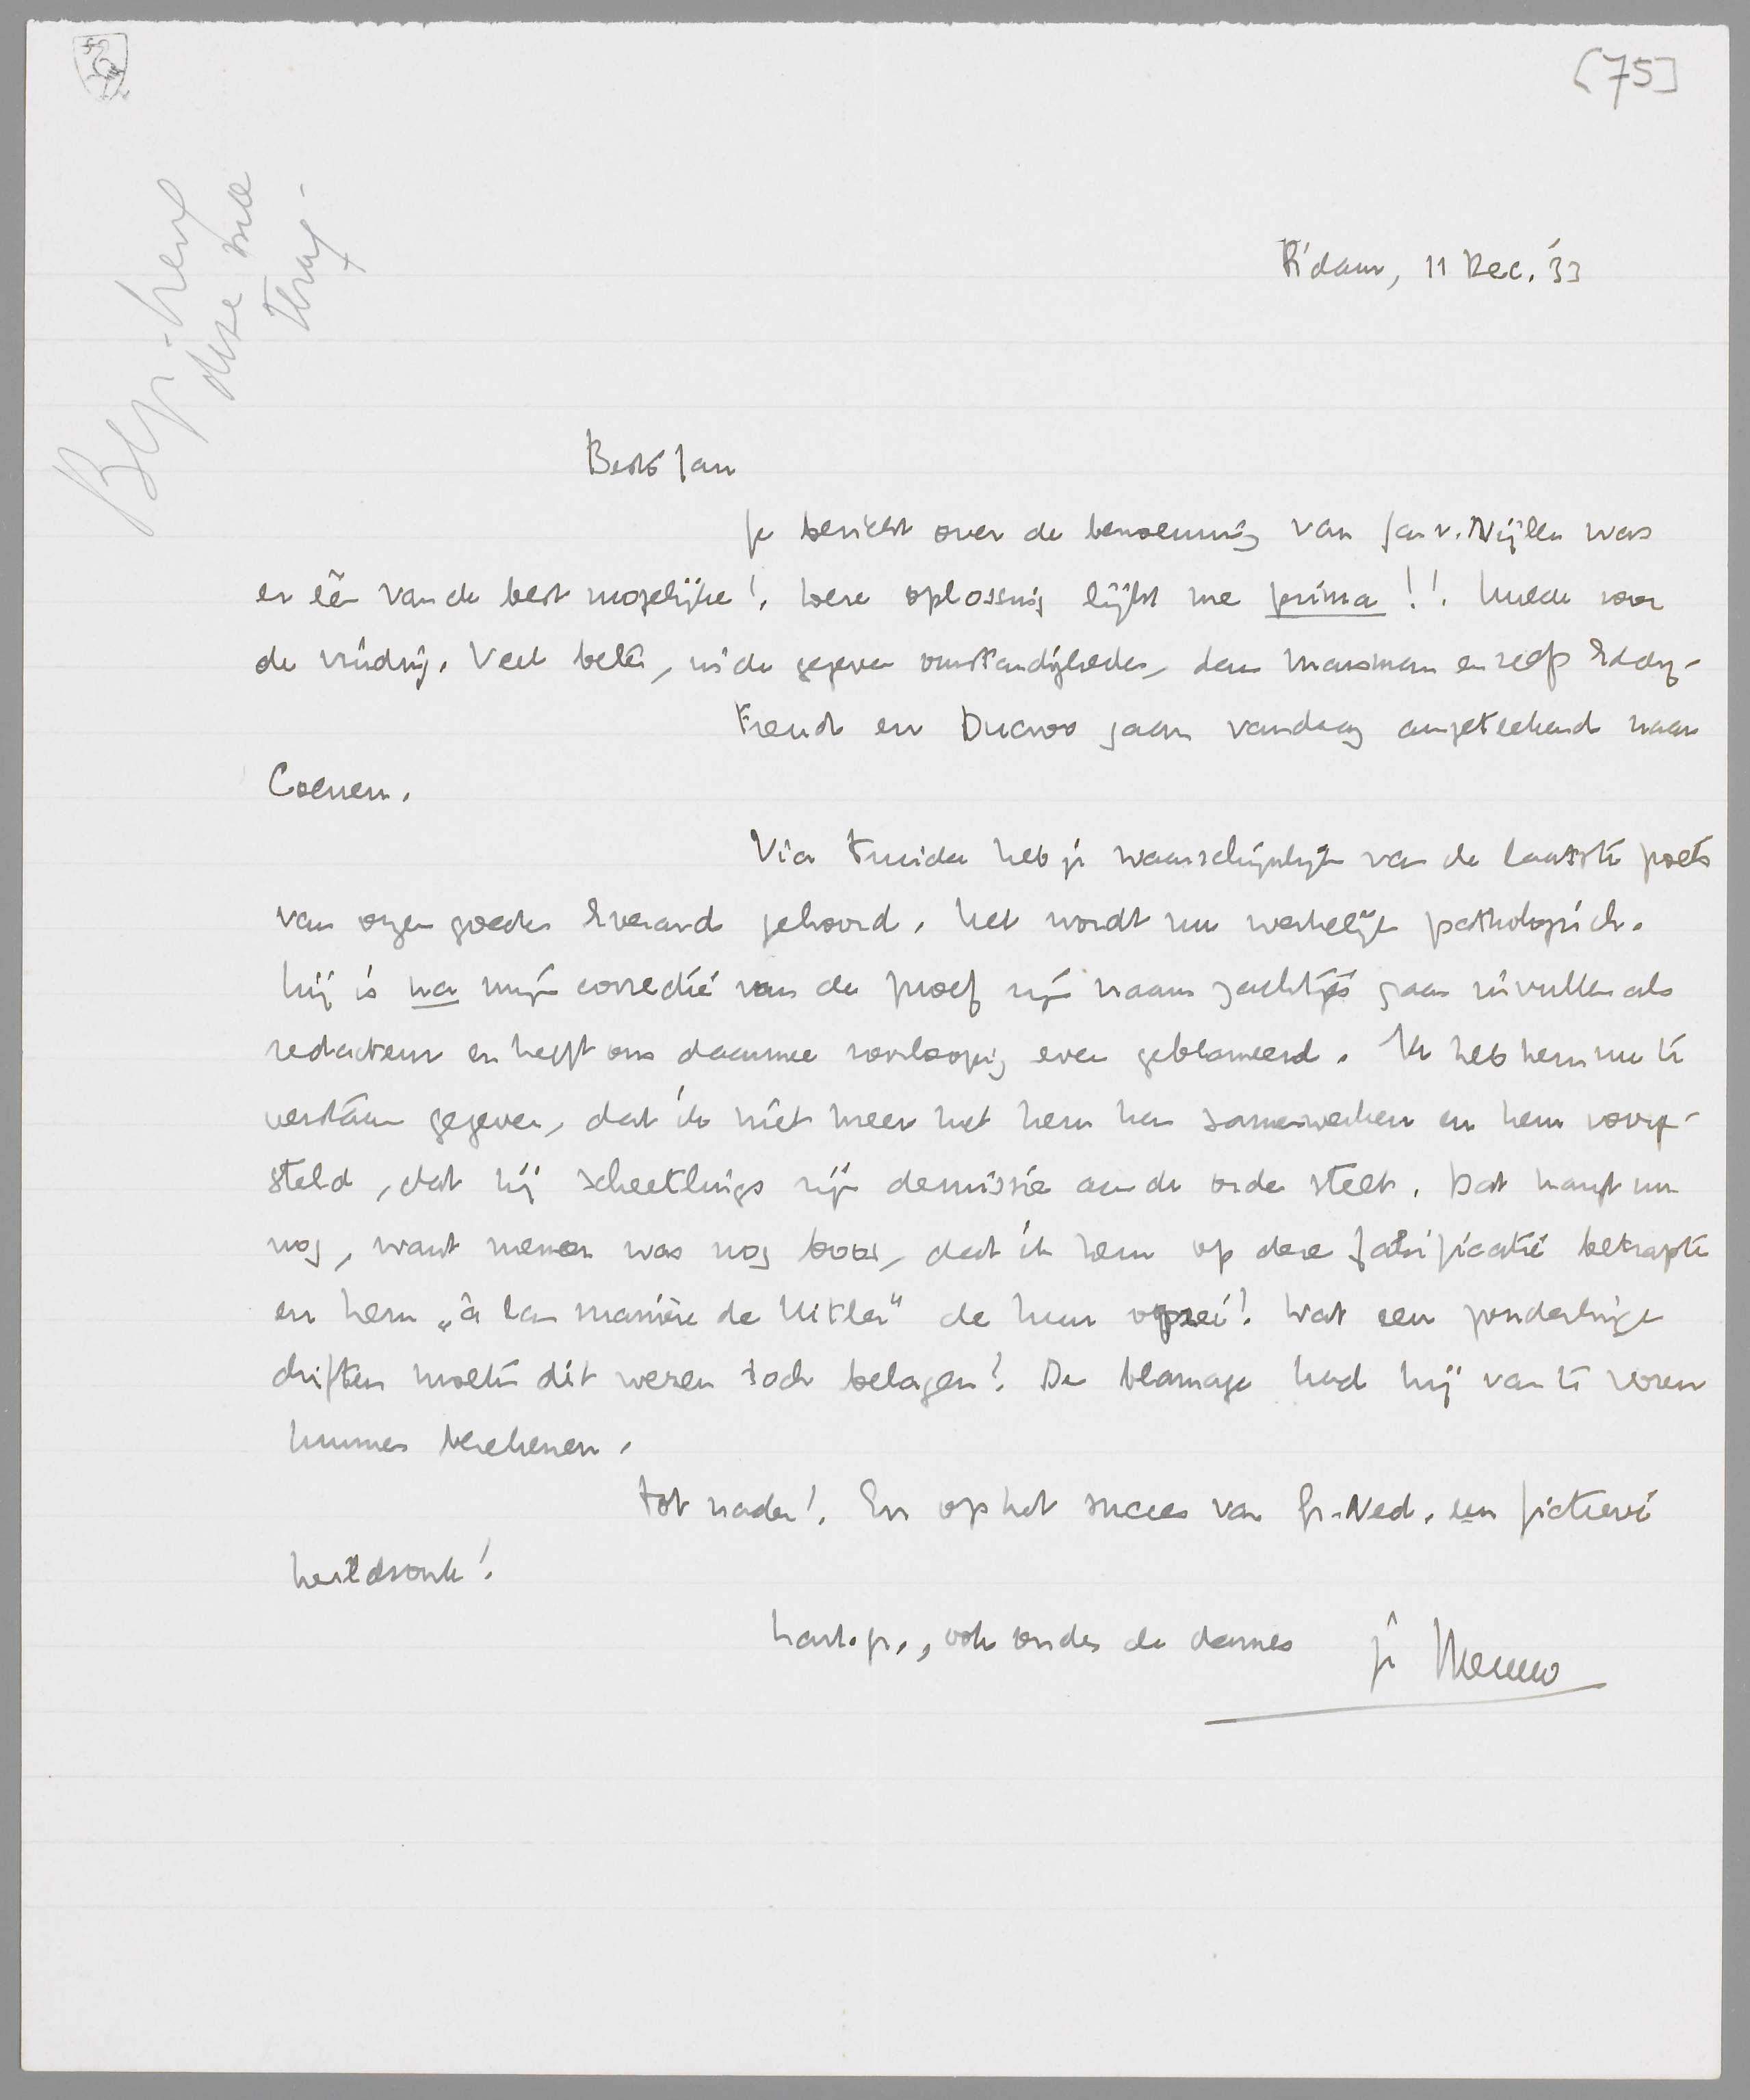 [75]
R'dam, 11 Dec. '33
Beste Jan
Je bericht over de benoeming van Jan v. Nijlen was
er één van de best mogelijke! Deze oplossing lijkt me prima!! Mede voor
de vrinding. Veel beter, in de gegeven omstandigheden, dan Marsman en zelfs Eddy.
Freud en Ducroo gaan vandaag aangeteekend naar
Coenen.
Via Truida heb je waarschijnlijk van de laatste poets
van onzen goeden Everard gehoord. Het wordt nu werkelijk pathologisch.
Hij is na mijn correctie van de proef zijn naam zachtjes gaan invullen als
redacteur en heeft ons daarmee voorloopig even geblameerd. Ik heb hem nu te
verstaan gegeven, dat ik niet meer met hem kan samenwerken en hem voorge-
steld, dat hij scheetlings zijn demissie aan de orde stelt. Dat hangt nu
nog, want meneer was nog boos, dat ik hem op deze falsificatie betrapte
en hem „à la manière de Hitler" de huur opzei! Wat een zonderlinge
driften moeten dit wezen toch belagen! De blamage had hij van te voren
kunnen berekenen.
Tot nader! En op het succes van Gr. Ned. een fictieve
heildronk!
hart. gr., ook onder de dames je Menno